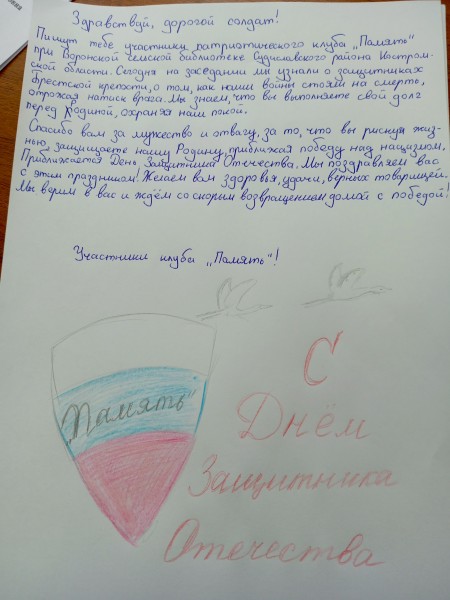 Здравствуй, дорогой солдат!
Пишут тебе участники патриотического клуба "Память"
при Воронской сельской библиотеке Судиславского района Костром-
ской области. Сегодня на заседании мы узнали о защитниках
Брестской крепости, о том, как наши войны стояли на смерть,
отрожая натиск врага. Мы знаем, что вы выполняете свой долг
перед Родиной, охраняя наш покой.
Спасибо вам за мужество и отвагу, за то, что вы рискуя жиз-
нью, защищаете нашу Родину, приближая победу над нацизмом.
Приближается День Защитника Отечества. Мы поздравляем вас
с этим праздником! Желаем вам здоровья, удачи, верных товарищей.
Мы верим в вас и ждём со скорым возвращением домой с победой!
Участники клуба "Память"!
"Память"
С
Днём
Защитника
Отечества